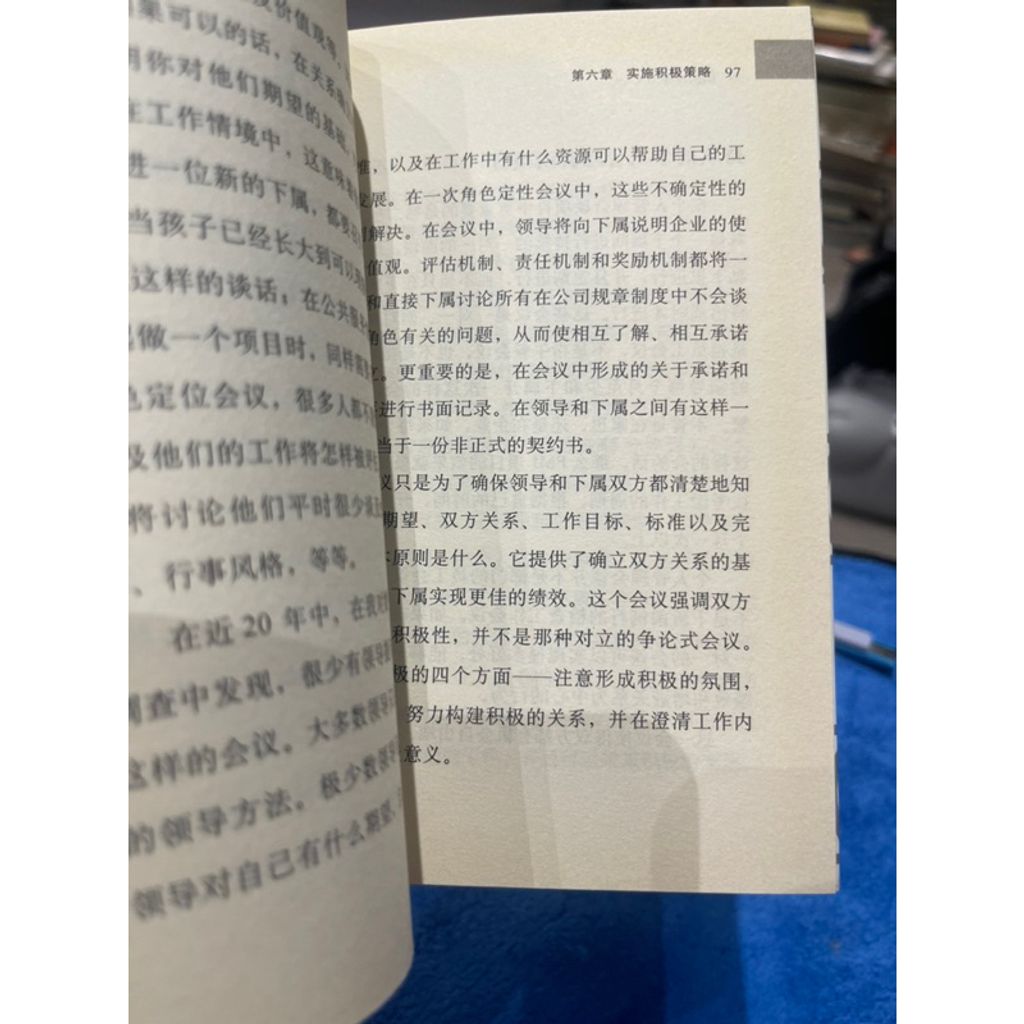 及价值观等，
果可以的话，在关系
明你对他们期望的基础，
在工作情境中，这意味着
进一位新的下属，都要
当孩子已经长大到可以
这样的谈话；在公共服
做一个项目时，同样需
色定位会议，很多人都不
及他们的工作将怎样被评
将讨论他们平时很少谈
、行事风格，等等。
在近 20 年中，在我
调查中发现，很少有领导
这样的会议。大多数领导
的领导方法。极少数领导
领导对自己有什么期望，
第六章 实施积极策略 97
准，以及在工作中有什么资源可以帮助自己的工
发展。在一次角色定性会议中，这些不确定性的
解决。在会议中，领导将向下属说明企业的使
值观。评估机制、责任机制和奖励机制都将一
和直接下属讨论所有在公司规章制度中不会谈
角色有关的问题，从而使相互了解、相互承诺
。更重要的是，在会议中形成的关于承诺和
进行书面记录。在领导和下属之间有这样一
当于一份非正式的契约书。
议只是为了确保领导和下属双方都清楚地知
期望、双方关系、工作目标、标准以及完
原则是什么。它提供了确立双方关系的基
下属实现更佳的绩效。这个会议强调双方
积极性，并不是那种对立的争论式会议。
极的四个方面——注意形成积极的氛围，
努力构建积极的关系，并在澄清工作内
意义。